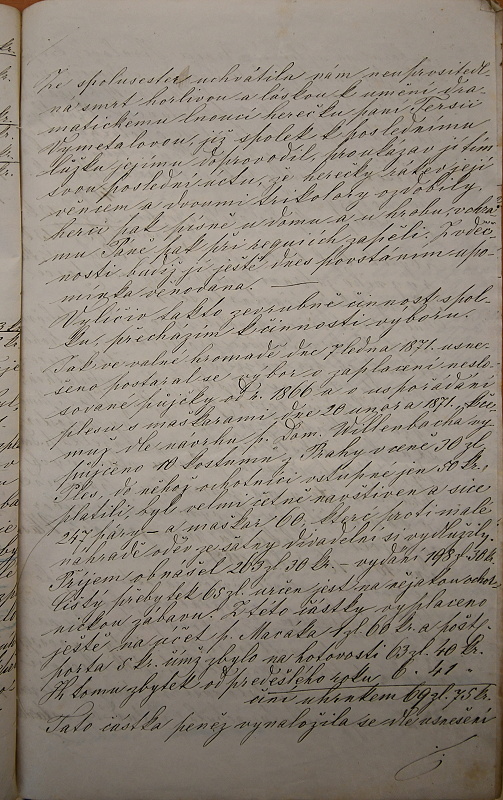 Ze spolusester uchvátila nám neuprositedl-
ná smrt horlivou a láskou k umění dra-
matickému lnoucí herečku paní Tersii
Vymetalovou, již spolek k poslednímu
lůžku jejímu doprovodil, proukázav jí tím
svou poslední úctu, je herečky rakev její
věncem a dvoumi trikolory ozdobily,
herci pak písně u domu a u hrobu, v chrá-
mu Páně pak při requiích zapěli. Z vděč-
nosti budiž jí ještě dnes povstáním upo-
mínka věnována. —
Vylíčiv takto zevrubně činnost spol-
ku, přecházím k činnosti výboru.
Jak ve valné hromadě dne 7 ledna 1871. usne-
šeno postaral se výbor o zaplacení neslo-
sované půjčky od r. 1866 a o uspořádání
plesu s maškarami dne 20 února 1871, k če-
muž dle návrhu p. Dom. Wellenbacha vy-
půjčeno 10 kostumů z Prahy v ceně 30 zl.
Ples, do něhož ochotníci vstupné jen 50 kr.
platili, byl velmi četně navštíven a sice
247 páry — a maškar 60, které proti malé
náhradě oděv ze šatny divadelní si vydlužily.
Příjem obnášel 263 zl 30 kr. — vydání 198 zl 30 kr
Čistý přebytek 65 zl. určen jest na nějakou ochot-
nickou zábavu. Z této částky vyplaceno
ještě na účet p. Maráka 1 zl. 60 kr. a pošt.
porta 5 kr. čímž zbylo na hotovosti 63 zl. 40 kr.
K tomu zbytek od předešlého roku 6 " 41 "
činí úhrnkem 69 zl. 75 kr.
Tato částka peněz vynaložila se dle usnešení